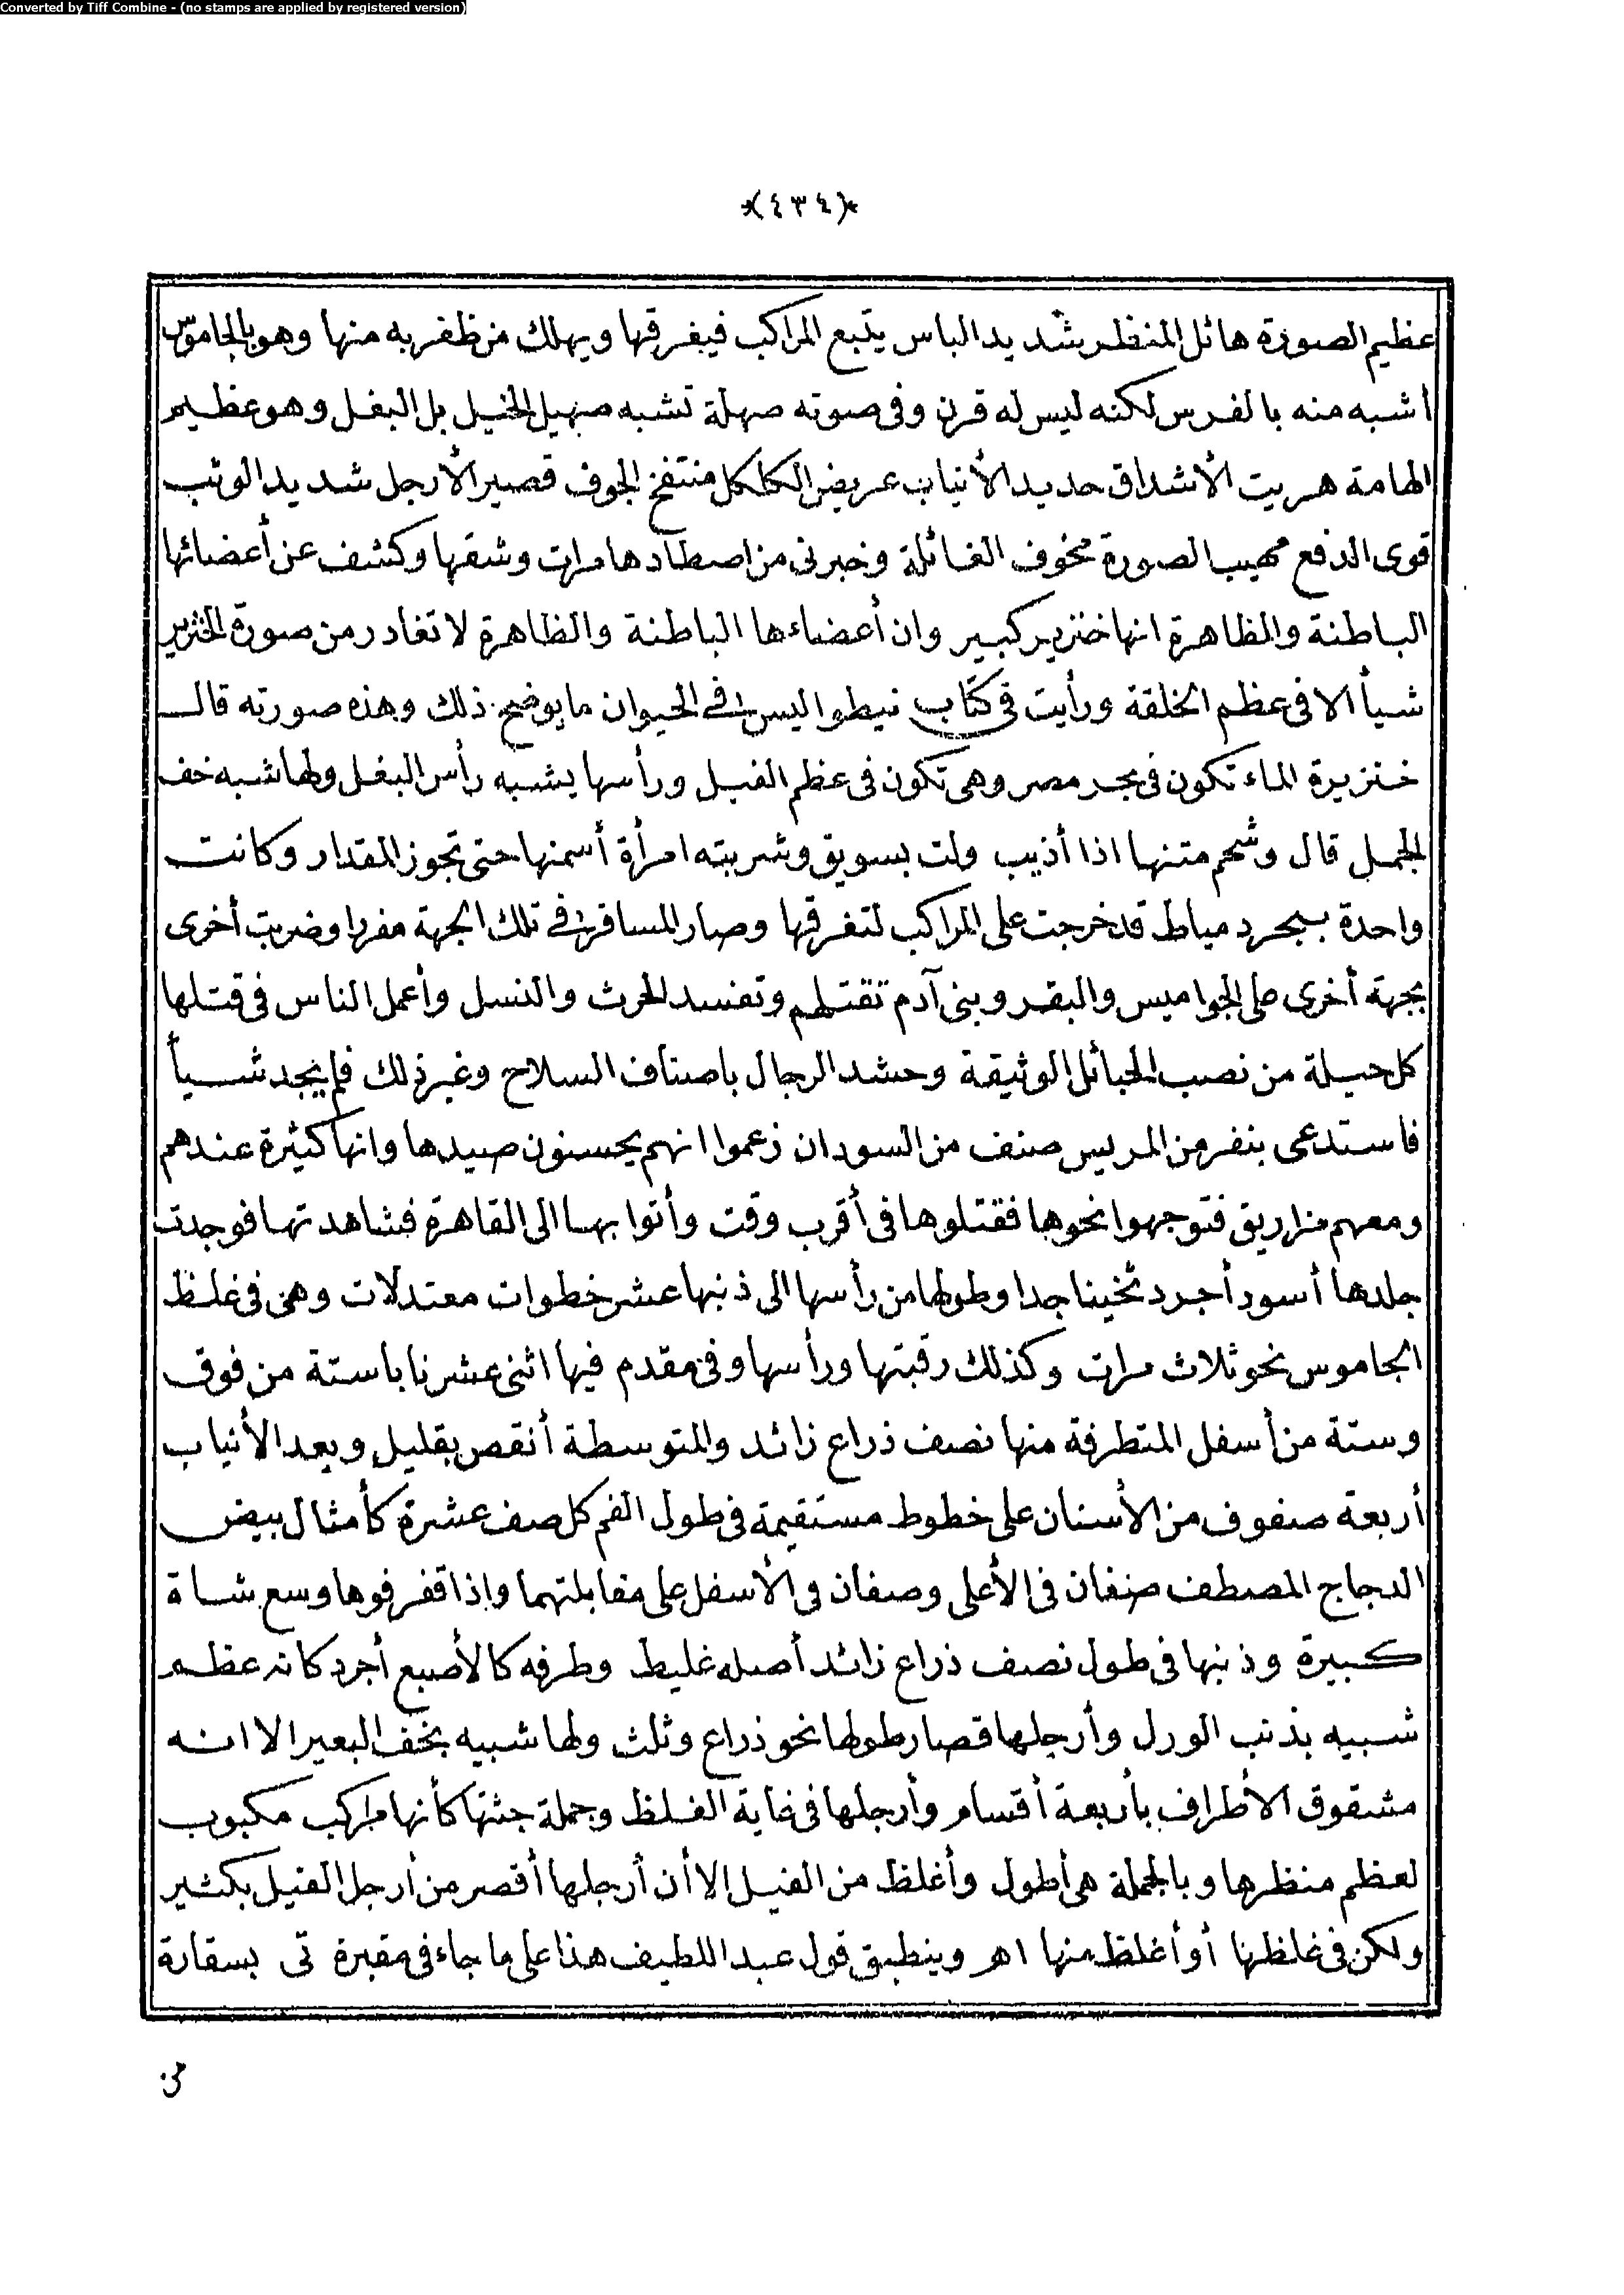 Converted by Tiff Combine - (no stamps are applied by registered version)
*(٤٣٤)*
عظيم الصورة هائل المنظر شديد الباس يتبع المراكب فيغرقها ويهلك من ظفر به منها وهو بالجاموس
أشبه منه بالفرس لكنه ليس له قرن وفى صوته صهلة تشبه صهيل الخيل بل البغل وهو عظيم
الهامة هريت الأشداق حديد الأنياب عريض الكلكل منتفخ الجوف قصير الأرجل شديد الوثب
قوى الدفع مهيب الصورة مخوف الغائلة وخبرنى من اصطادها مرات وشقها وكشف عن أعضائها
الباطنة والظاهرة انها خنزير كبير وان أعضاءها الباطنة والظاهرة لا تغادر من صورة الخنزير
شيأ الا فى عظم الخلقة ورأيت فى كتاب نيطواليس فى الحيوان ما يوضح ذلك وهذه صورته قال
خنزيرة الماء تكون فى بحر مصر وهى تكون فى عظم الفيل ورأسها يشبه رأس البغل ولها شبه خف
الجمل قال وشحم متنها اذا أذيب ولت بسويق وشربته امرأة أسمنها حتى تجوز المقدار وكانت
واحدة ببحر دمياط قد خرجت على المراكب لتغرقها وصار المسافر فى تلك الجهة مغررا وضربت أخرى
بجهة أخرى على الجواميس والبقر وبنى آدم تقتلهم وتفسد الحرث والنسل وأعمل الناس فى قتلها
كل حيلة من نصب الحبائل الوثيقة وحشد الرجال باصناف السلاح وغير ذلك فلم يجد شيأ
فاستدعى بنفر من المريس صنف من السودان زعموا انهم يحسنون صيدها وانها كثيرة عندهم
ومعهم مزاريق فتوجهوا نحوها فقتلوها فى أقرب وقت وأتوا بها الى القاهرة فشاهدتها فوجدت
جلدها أسود أجرد ثخينا جدا وطولها من رأسها الى ذنبها عشر خطوات معتدلات وهى فى غلظ
الجاموس نحو ثلاث مرات وكذلك رقبتها ورأسها وفى مقدم فيها اثنى عشر نابا ستة من فوق
وستة من أسفل المتطرفة منها نصف ذراع زائد والمتوسطة أنقص بقليل وبعد الأنياب
أربعة صفوف من الأسنان على خطوط مستقيمة فى طول الفم كل صف عشرة كأمثال بيض
الدجاج المصطف صفان فى الأعلى وصفان فى الأسفل على مقابلتهما واذا قغر فوها وسع شاة
كبيرة وذنبها فى طول نصف ذراع زائد أصله غليط وطرفه كالأصبع أجرد كانه عظم
شبيه بذنب الورل وأرجلها قصار طولها نحو ذراع وثلث ولها شبيه بخف البعير الا انه
مشقوق الأطراف بأربعة أقسام وأرجلها فى غاية الغلظ وجملة جثتها كأنها مركب مكبوب
لعظم منظرها وبالجملة هى أطول وأغلظ من الفيل الا أن أرجلها أقصر من أرجل الفيل بكثير
ولكن فى غلظها أو أغلظ منها اهـ وينطبق قول عبد اللطيف هذا على ما جاء فى مقبرة تى بسقارة